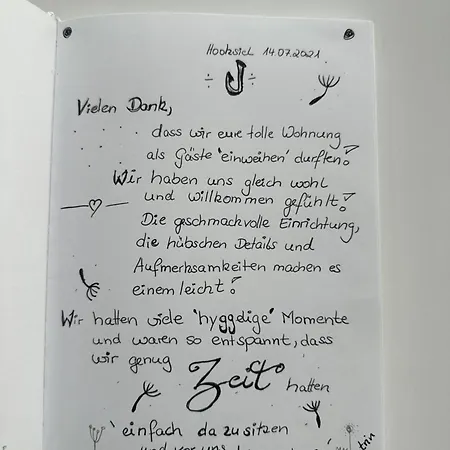 Hooksiel 14.07.2021
Vielen Dank,
dass wir eure tolle Wohnung
als Gäste 'einweihen' durften!
Wir haben uns gleich wohl
und willkommen gefühlt!
Die geschmackvolle Einrichtung,
die hübschen Details und
Aufmerksamkeiten machen es
einem leicht!
Wir hatten viele 'hyggelige' Momente
und waren so entspannt, dass
wir genug
Zeit hatten
'einfach da zu sitzen
und vor uns